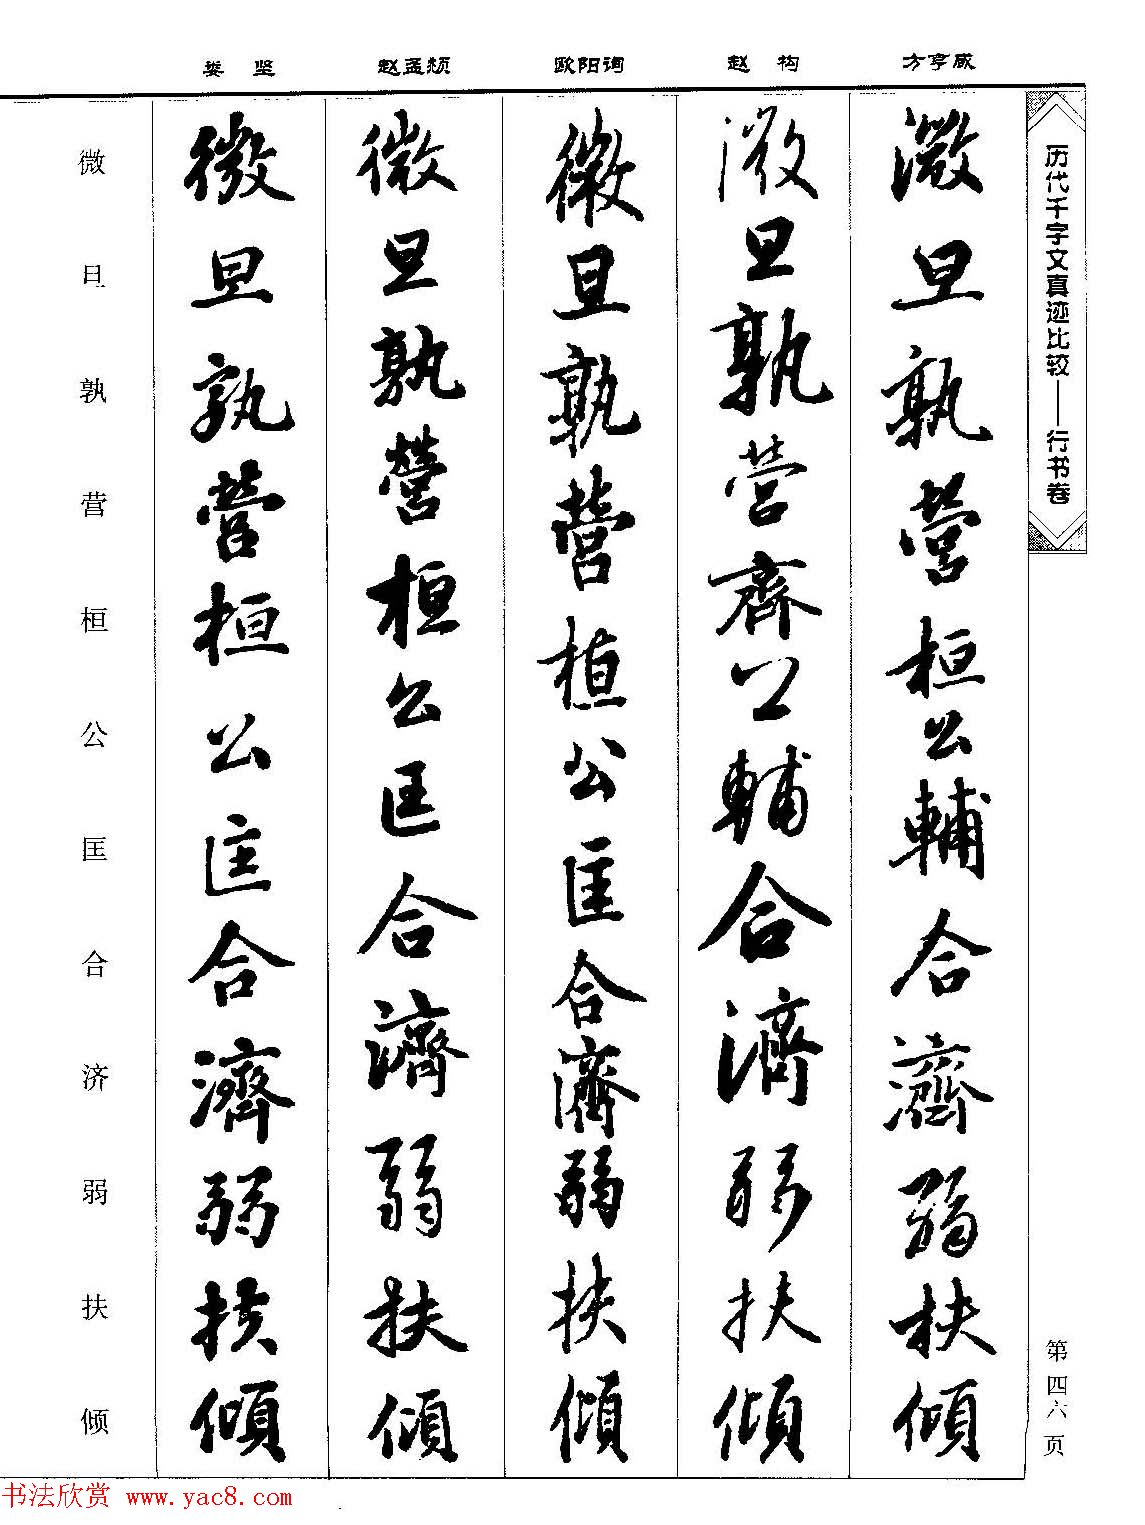 历代千字文真迹比较——行书卷
第四六页
方孝咸
澂旦孰營桓公輔合濟弱扶傾
赵构
澂旦孰營齊公輔合濟弱扶傾
欧阳询
微旦孰營桓公匡合濟弱扶傾
赵孟頫
微旦孰營桓公匡合濟弱扶傾
娄坚
微旦孰營桓公匡合濟弱扶傾
微旦孰营桓公匡合济弱扶倾
书法欣赏 www.yac8.com